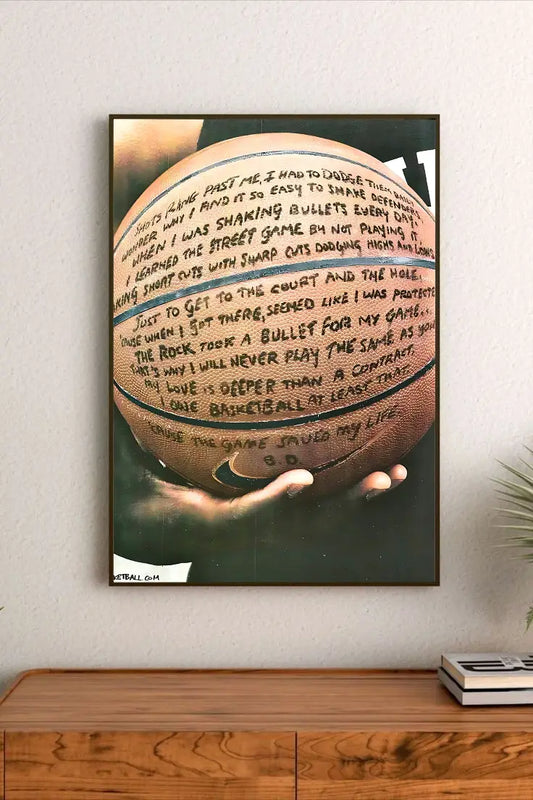 SHOTS RANG PAST ME, I HAD TO DODGE THEM DAILY
WONDER WHY I FIND IT SO EASY TO SHAKE DEFENDERS
WHEN I WAS SHAKING BULLETS EVERY DAY.
I LEARNED THE STREET GAME BY NOT PLAYING IT
KING SHORT CUTS WITH SHARP CUTS DODGING HIGHS AND LOWS
JUST TO GET TO THE COURT AND THE HOLE.
'CAUSE WHEN I GOT THERE, SEEMED LIKE I WAS PROTECTE
THE ROCK TOOK A BULLET FOR MY GAME...
THAT'S WHY I WILL NEVER PLAY THE SAME AS YOU
MY LOVE IS DEEPER THAN A CONTRACT,
I OWE BASKETBALL AT LEAST THAT.
'CAUSE THE GAME SAVED MY LIFE.
B.D
KETBALL.COM